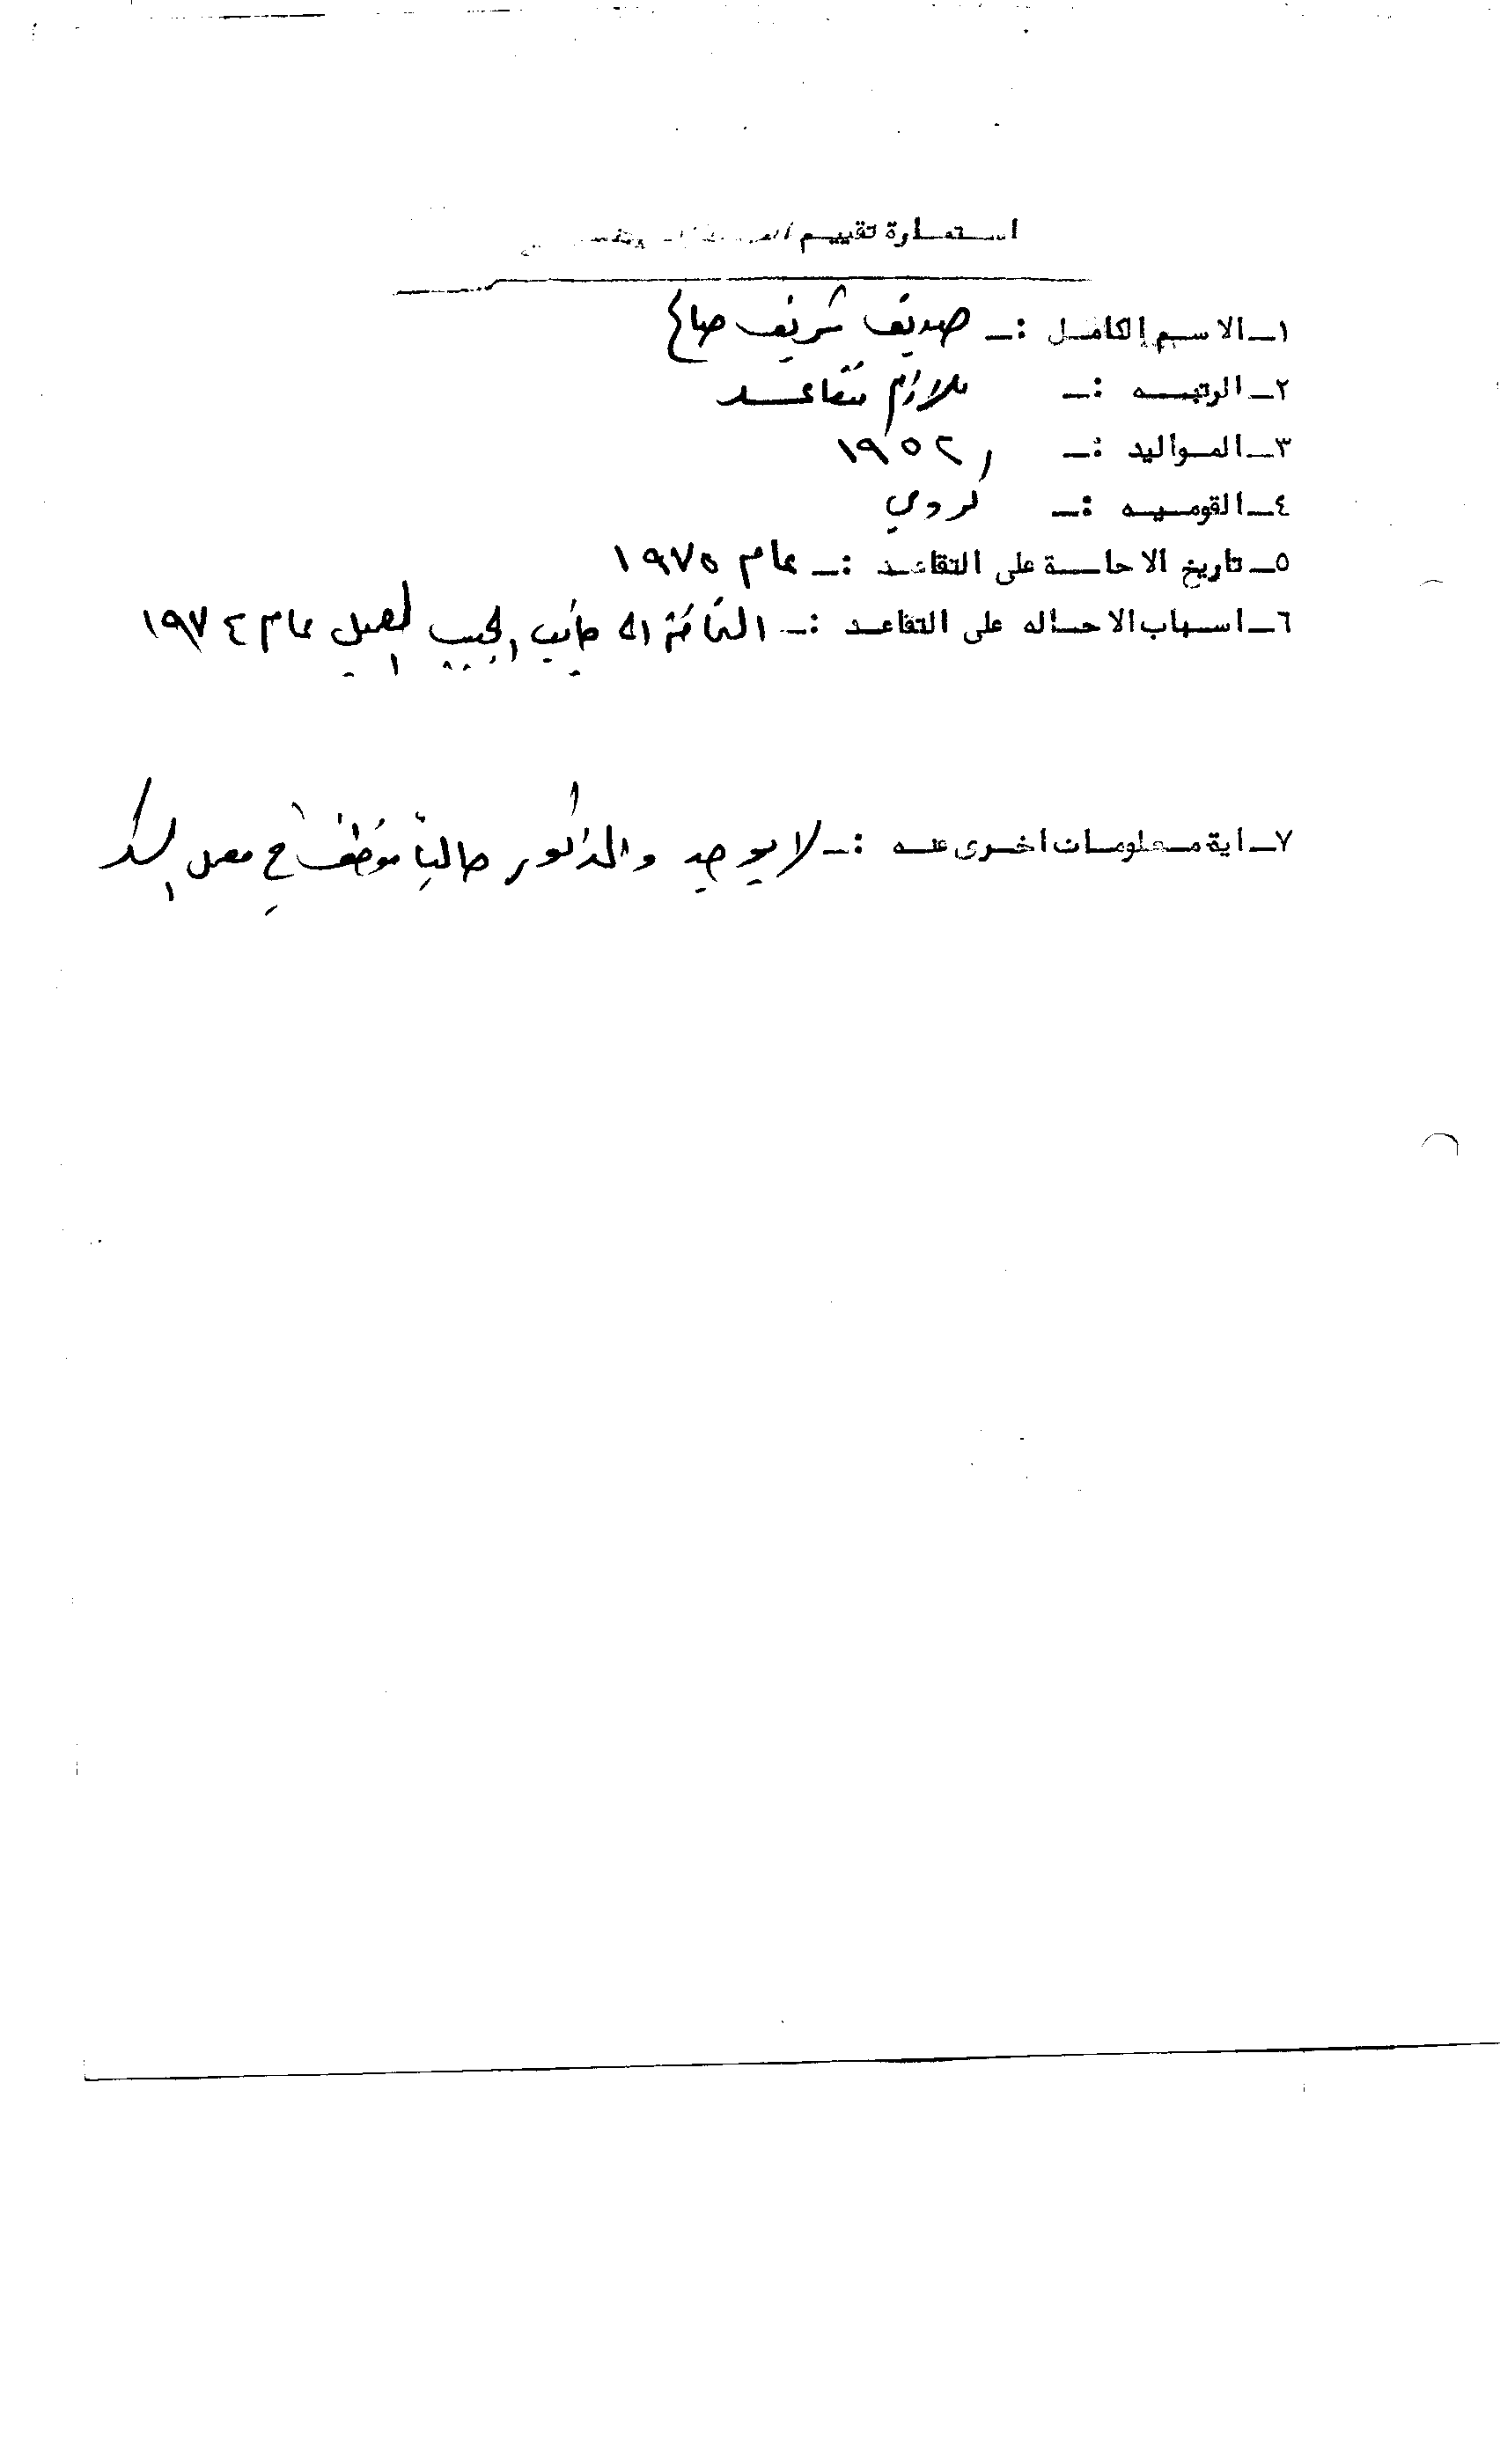 استمارة تقييم
١ـ الاسم الكامل :ـ صديق شريف صالح
٢ـ الرتبه :ـ ملازم متقاعد
٣ـ المواليد :ـ ١٩٥٢
٤ـ القوميه :ـ كردي
٥ـ تاريخ الاحالة على التقاعد :ـ عام ١٩٧٥
٦ـ اسباب الاحاله على التقاعد :ـ التحاقه الى جانب الجيب العميل عام ١٩٧٤
٧ـ اية معلومات اخرى عنه :ـ لا يوجد والمذكور حالياً موظف في معمل السكر